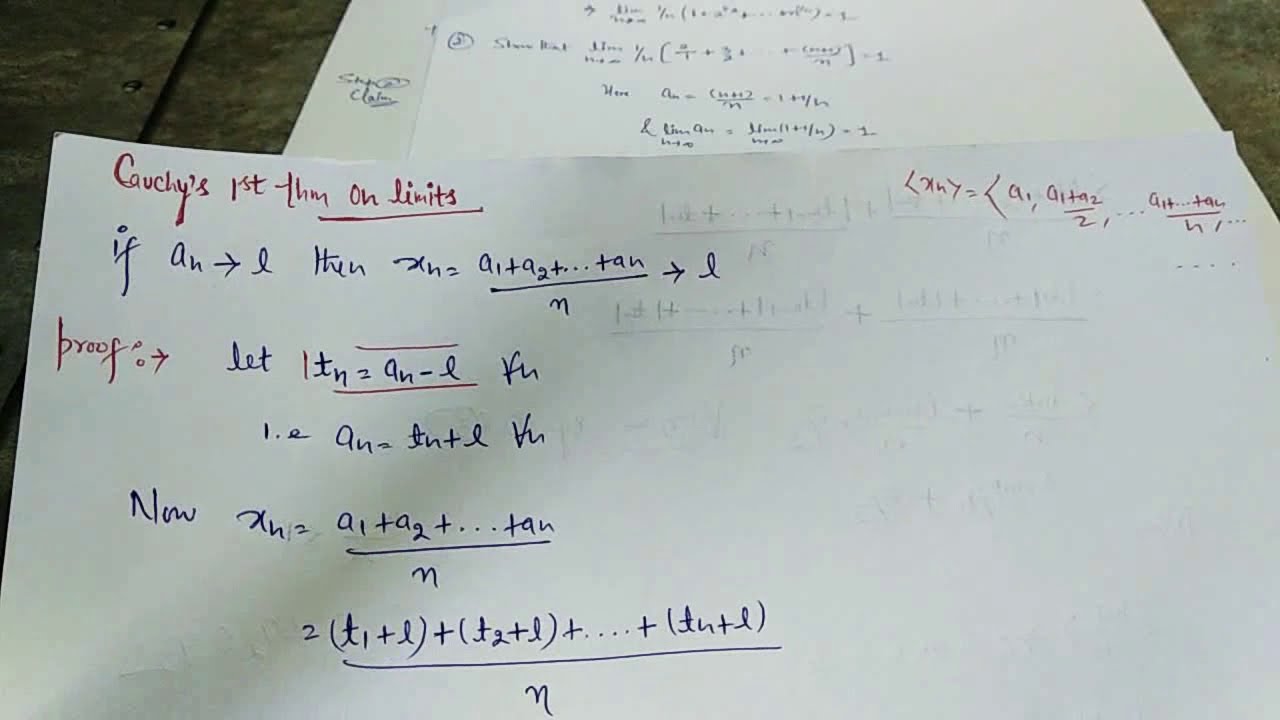 → lim n→∞ 1/n (1+
⑤ Show that lim n→∞ 1/n [2/1 + 3/2 + ... + (n+1)/n] = 1
Step ②
Claim
Here an = (n+1)/n = 1+1/n
& lim n→∞ an = lim n→∞ (1+1/n) = 1
Cauchy's 1st thm on limits
<xn> = < a1, a1+a2/2, ... a1+...+an/n, ...
....
if an → l then xn = a1+a2+...+an/n → l
proof:→ let |tn = an-l ∀n
i.e an = tn+l ∀n
Now xn = a1+a2+...+an/n
= (t1+l)+(t2+l)+....+(tn+l)/n